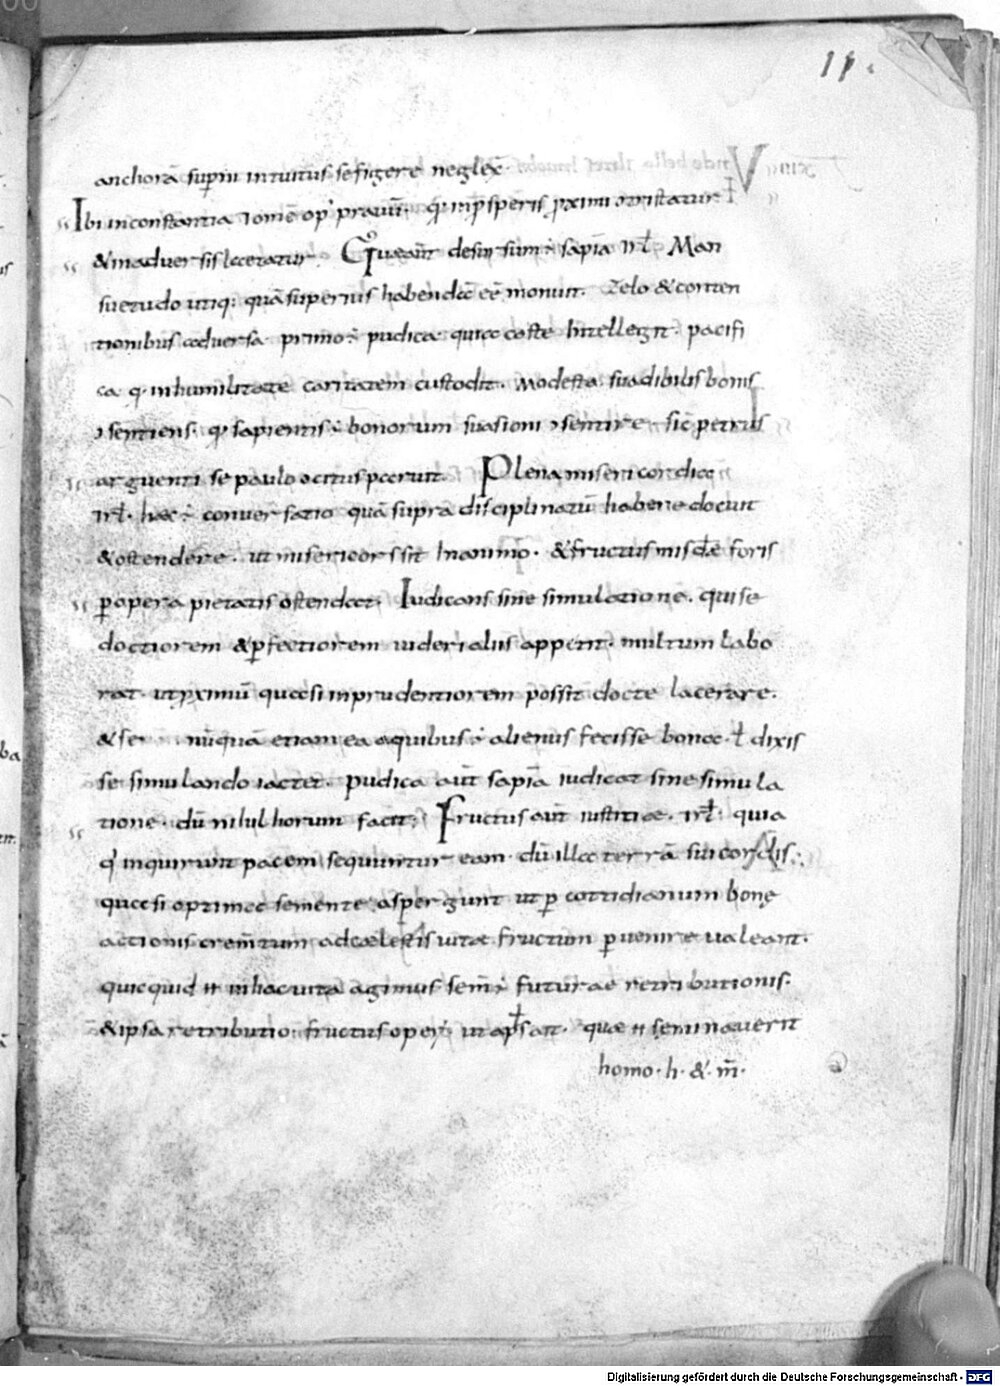 11.
anchorā sup̄ni intuitus se figere neglex̄
Ibi inconstantia
& in adversis laceratur. Quae aūt desursum ÷ sapīa Man
suetudo utiq; quā superius habendā eē monuit. Zelo & conten
tionibus adversa. primo ÷ pudica quia caste intellegit. pacifi
ca q̇ in humilitate caritatem custodit. Modesta suadibilis bonis
ɔsentiens. q̇ sapientis ÷ bonorum suasioni ɔsentire sic petrus
arguenti se paulo Plena misericordia
hæc ÷ conversatio quā supra disciplinatū habere docuit
& ostendere. ut misericors sit in animo. & fructus mis̄dæ foris
p̄ opera pietatis ostendat. Iudicans sine simulatione. qui se
doctiorem & p̄fectiorem uideri aliis appetit. multum labo
rat. ut ꝓximū quasi inprudentiorem possit docte lacerare.
& se nūquā etiam ea a quibus ÷ alienus fecisse bona ɫ dixis
se simulando iactet. pudica aūt sapīa iudicat sine simula
tione. dū nihil horum facit. Fructus aūt iustitiæ. quia
q̇ inquirunt pacem sequuntur eam. dū illa terrā sui cordis.
quasi optima semente aspergunt ut p̄ cottidianum bonę
actionis crem̄tum ad cælestis uitæ fructum p̄uenire ualeant.
quicquid in hac uita agimus sem̄ ÷ futurae retributionis.
& ipsa retributio. fructus quæ seminaverit
homo. h. & m̄.
Digitalisierung gefördert durch die Deutsche Forschungsgemeinschaft - DFG